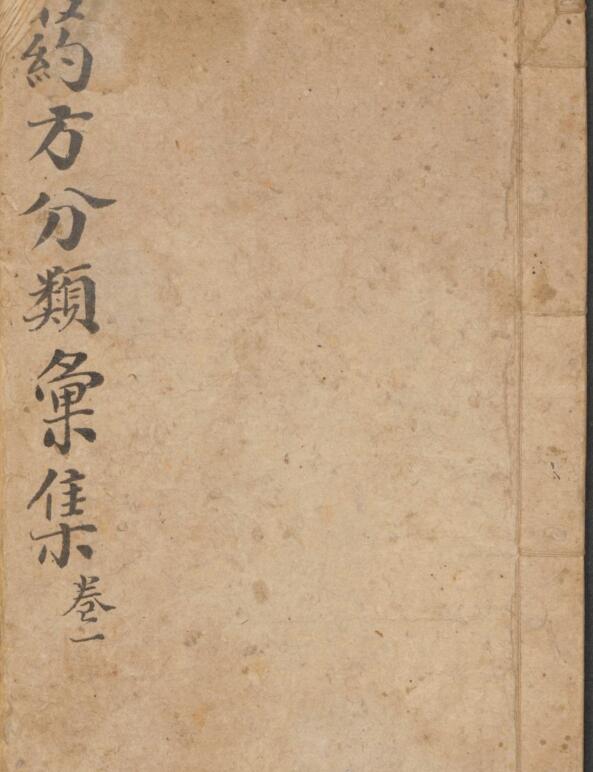 葯方分類彙集
卷一